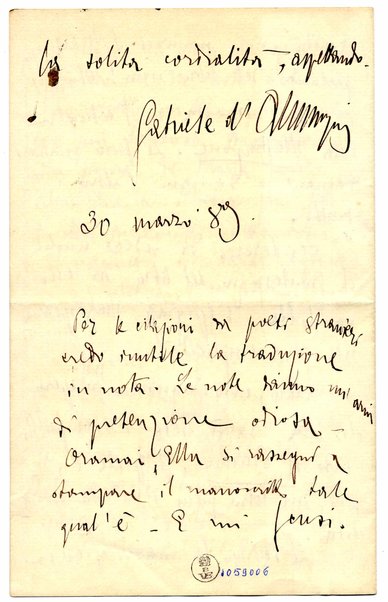 la solita cordialità, aspettando.
Gabriele d'Annunzio
30 marzo 89.
Per le citazioni da poeti stranieri
credo inutile la traduzione
in nota. Le note danno un'aria
di pretenzione odiosa –
Oramai, Ella si rassegni a
stampare il manoscritto tale
qual'è – E mi scusi.
1059006